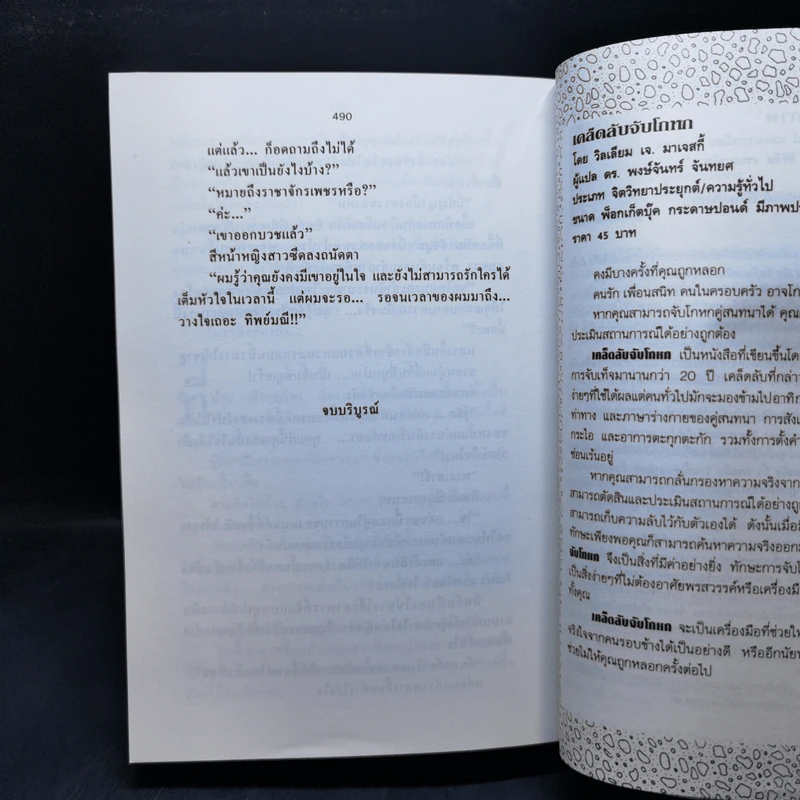 490
แต่แล้ว... ก็อดถามถึงไม่ได้
“แล้วเขาเป็นยังไงบ้าง?”
“หมายถึงราชาจักรเพชรหรือ?”
“ค่ะ...”
“เขาออกบวชแล้ว”
สีหน้าหญิงสาวซีดลงถนัดตา
“ผมรู้ว่าคุณยังคงมีเขาอยู่ในใจ และยังไม่สามารถรักใครได้
เต็มหัวใจในเวลานี้ แต่ผมจะรอ... รอจนเวลาของผมมาถึง...
วางใจเถอะ ทิพย์มณี!!”
จบบริบูรณ์
เคล็ดลับจับโกหก
โดย วิลเลียม เจ. มาเจสกี้
ผู้แปล ดร. พงษ์จันทร์ จันทยศ
ประเภท จิตวิทยาประยุกต์/ความรู้ทั่วไป
ขนาด พ็อกเก็ตบุ๊ค กระดาษปอนด์ มีภาพ
ราคา 45 บาท
คงมีบางครั้งที่คุณถูกหลอก
คนรัก เพื่อนสนิท คนในครอบครัว อาจ
หากคุณสามารถจับโกหกคู่สนทนาได้
ประเมินสถานการณ์ได้อย่างถูกต้อง
เคล็ดลับจับโกหก เป็นหนังสือที่เขียนขึ้น
การจับเท็จมานานกว่า 20 ปี เคล็ดลับที่
ง่ายๆที่ใช้ได้ผลแต่คนทั่วไปมักจะมองข้ามไปอาทิ
ท่าทาง และภาษาร่างกายของคู่สนทนา การ
กระไอ และอาการตะกุกตะกัก รวมทั้งการตั้ง
ซ่อนเร้นอยู่
หากคุณสามารถกลั่นกรองหาความจริงจาก
สามารถตัดสินและประเมินสถานการณ์ได้อย่าง
สามารถเก็บความลับไว้กับตัวเองได้ ดังนั้นเมื่อ
ทักษะเพียงพอคุณก็สามารถค้นหาความจริงออก
จับโกหก จึงเป็นสิ่งที่มีค่าอย่างยิ่ง ทักษะการจับ
เป็นสิ่งง่ายๆที่ไม่ต้องอาศัยพรสวรรค์หรือเครื่อง
ทั้งคุณ
เคล็ดลับจับโกหก จะเป็นเครื่องมือที่ช่วย
จริงใจจากคนรอบข้างได้เป็นอย่างดี หรืออีก
ช่วยไม่ให้คุณถูกหลอกครั้งต่อไป